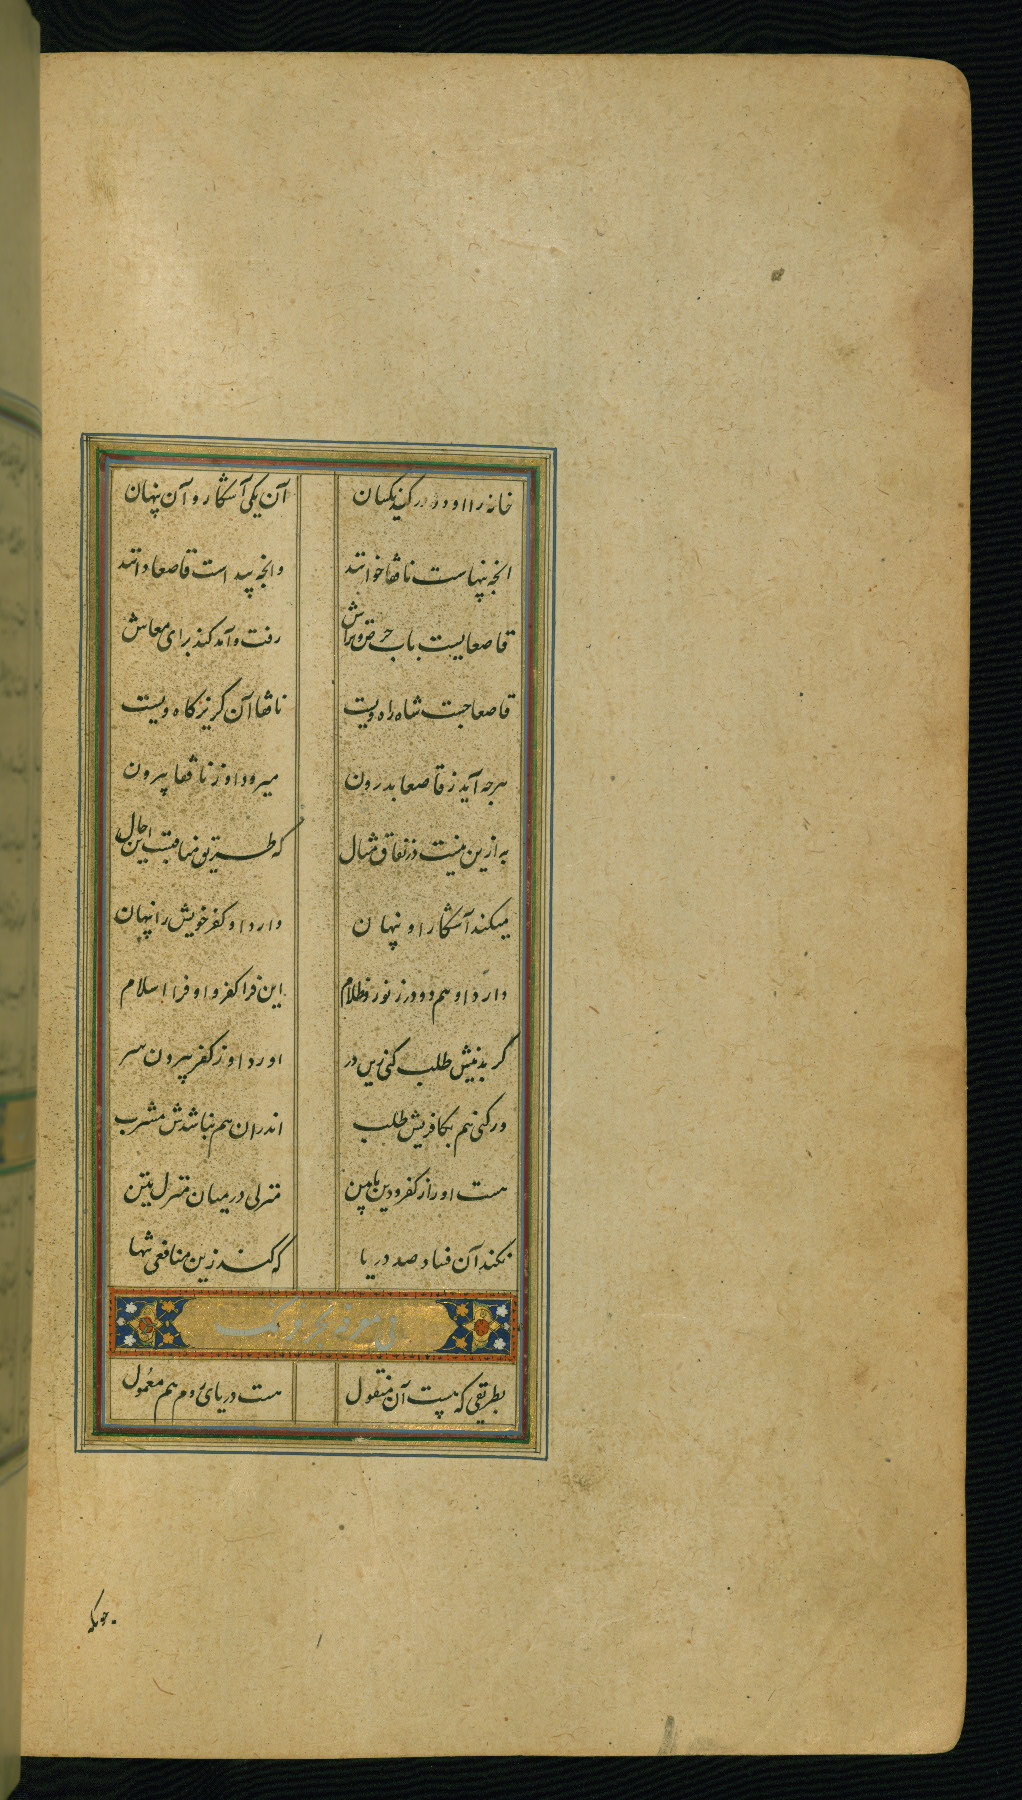 خانه را او دو در کند یکسان آن یکی آشکار و آن پنهان
انچه پنهاست نافقا خوانند وانچه پیداست قاصعا دانند
قاصعا یست باب رفت و آمد کند برای معاش
قاصعا جست شاه راه ویست نافقا آن گریز کاه ویست
هرچه آید ز قاصعا بدرون میرود او ز نافقا بیرون
به ازین نیست در نفاق مثال که طریق منافقیت این حال
میکند آشکار او پنهان دارد او کفر خویش را پنهان
دارد او هم دو در ز نور و ظلام این فرا کفر و او فرا اسلام
گر بدینش طلب کنی زین در اورد او ز کفر بیرون سر
ورکنی هم بکافریش طلب اندران هم نباشدش مشرب
هست او را ز کفر و دین مابین منزلی در میان منزلیتن
نکند آن فساد صد دریا که کند زین منافقی تنها
بطریقی که هست آن منقول هست دریای روم هم معمول